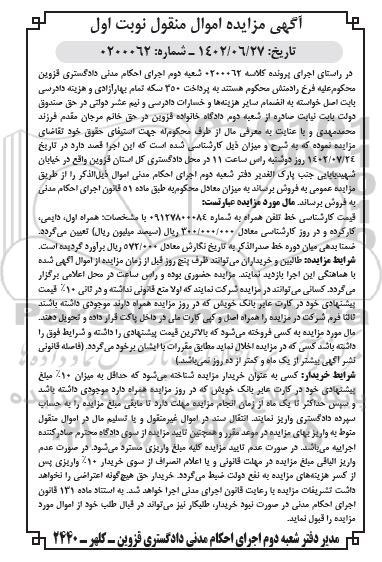 آگهی مزایده اموال منقول نوبت اول
تاریخ: ۱۴۰۲/۰۶/۲۷ ـ شماره: ۰۲۰۰۰۶۲
در راستای اجرای پرونده کلاسه ۰۲۰۰۰۶۲ شعبه دوم اجرای احکام مدنی دادگستری قزوین
محکوم‌علیه فرخ رادمنش محکوم هستند به پرداخت ۳۵۰ سکه تمام بهارآزادی و هزینه دادرسی
بابت اصل خواسته به انضمام سایر هزینه‌ها و خسارات دادرسی و نیم عشر دولتی در حق صندوق
دولت بابت نیابت صادره از شعبه دوم دادگاه خانواده قزوین در حق خانم مرجان مقدم فرزند
محمدمهدی و با عنایت به معرفی مال از طرف محکوم‌له جهت استیفای حقوق خود تقاضای
مزایده نموده که به شرح و میزان ذیل کارشناسی شده است که این اجرا قصد دارد در تاریخ
۱۴۰۲/۰۷/۲۴ روز دوشنبه راس ساعت ۱۱ در محل دادگستری کل استان قزوین واقع در خیابان
شهیدبابایی جنب پارک الغدیر دفتر شعبه دوم اجرای احکام مدنی اموال ذیل‌الذکر را از طریق
مزایده عمومی به فروش برساند به میزان معادل محکوم‌به طبق ماده ۵۱ قانون اجرای احکام مدنی
به فروش برساند. مال مورد مزایده عبارتست:
قیمت کارشناسی خط تلفن همراه به شماره ۰۹۱۲۷۸۰۰۰۸۴ با مشخصات: همراه اول، دایمی،
کارکرده و در روز کارشناسی معادل ۳۰۰/۰۰۰/۰۰۰ ریال (سیصد میلیون ریال) تعیین می‌گردد.
ضمنا بدهی میان دوره خط صدرالذکر به تاریخ نگارش معادل ۵۷۲/۰۰۰ ریال برآورد گردیده است.
شرایط مزایده: طالبین و خریداران می‌توانند ظرف پنج روز قبل از زمان مزایده از اموال آگهی شده
با هماهنگی این اجرا بازدید نمایند. مزایده حضوری بوده و راس ساعت در محل اعلامی برگزار
می‌گردد. کسانی می‌توانند در مزایده شرکت نمایند که اولا منع قانونی نداشته و در ثانی ۱۰٪ قیمت
پیشنهادی خود در کارت عابر بانک خویش که در روز مزایده همراه دارند موجودی داشته باشند
ثالثا فرم شرکت در مزایده را همراه اصل و کپی کارت ملی در داخل پاکت قرار داده و تحویل دهند.
مال مورد مزایده به کسی فروخته می‌شود که بالاترین قیمت پیشنهادی را داشته و شرایط فوق را
داشته باشد کسی که در مزایده اخلال نماید مطابق مقررات با ایشان برخورد می‌گردد. (فاصله قانونی
نشر آگهی بیشتر از یک ماه و کمتر از ده روز نمی‌باشد.)
شرایط خریدار: کسی به عنوان خریدار مزایده شناخته می‌شود که حداقل به میزان ۱۰٪ مبلغ
پیشنهادی خود در کارت عابر بانک خویش که در روز مزایده همراه دارد موجودی داشته باشد
و سپس حداکثر تا یک ماه از زمان انجام مزایده مهلت دارد تا مابقی مبلغ مزایده را به حساب
سپرده دادگستری واریز نمایند. انتقال سند در اموال غیرمنقول و یا تسلیم مال در اموال منقول
منوط به واریز بهای مزایده در موعد مقرر و همچنین تایید مزایده از سوی دادگاه محترم صادرکننده
اجراییه می‌باشد. در صورت عدم تایید مزایده کلیه مبلغ واریزی مسترد می‌شود. در صورت عدم
واریز الباقی مبلغ مزایده در مهلت قانونی و یا اعلام انصراف از سوی خریدار ۱۰٪ واریزی پس
از کسر هزینه‌های مزایده به نفع دولت ضبط می‌گردد. خریدار حق هیچ‌گونه اعتراضی را نخواهد
داشت تشریفات مزایده با رعایت قانون اجرای مدنی اجرا خواهد شد. به استناد ماده ۱۳۱ قانون
اجرای احکام مدنی در صورت نبود خریدار، طلبکار نیز می‌تواند در قبال طلب خود از اموال مورد
مزایده را قبول نماید.
مدیر دفتر شعبه دوم اجرای احکام مدنی دادگستری قزوین ـ کلهر ـ ۲۴۴۰